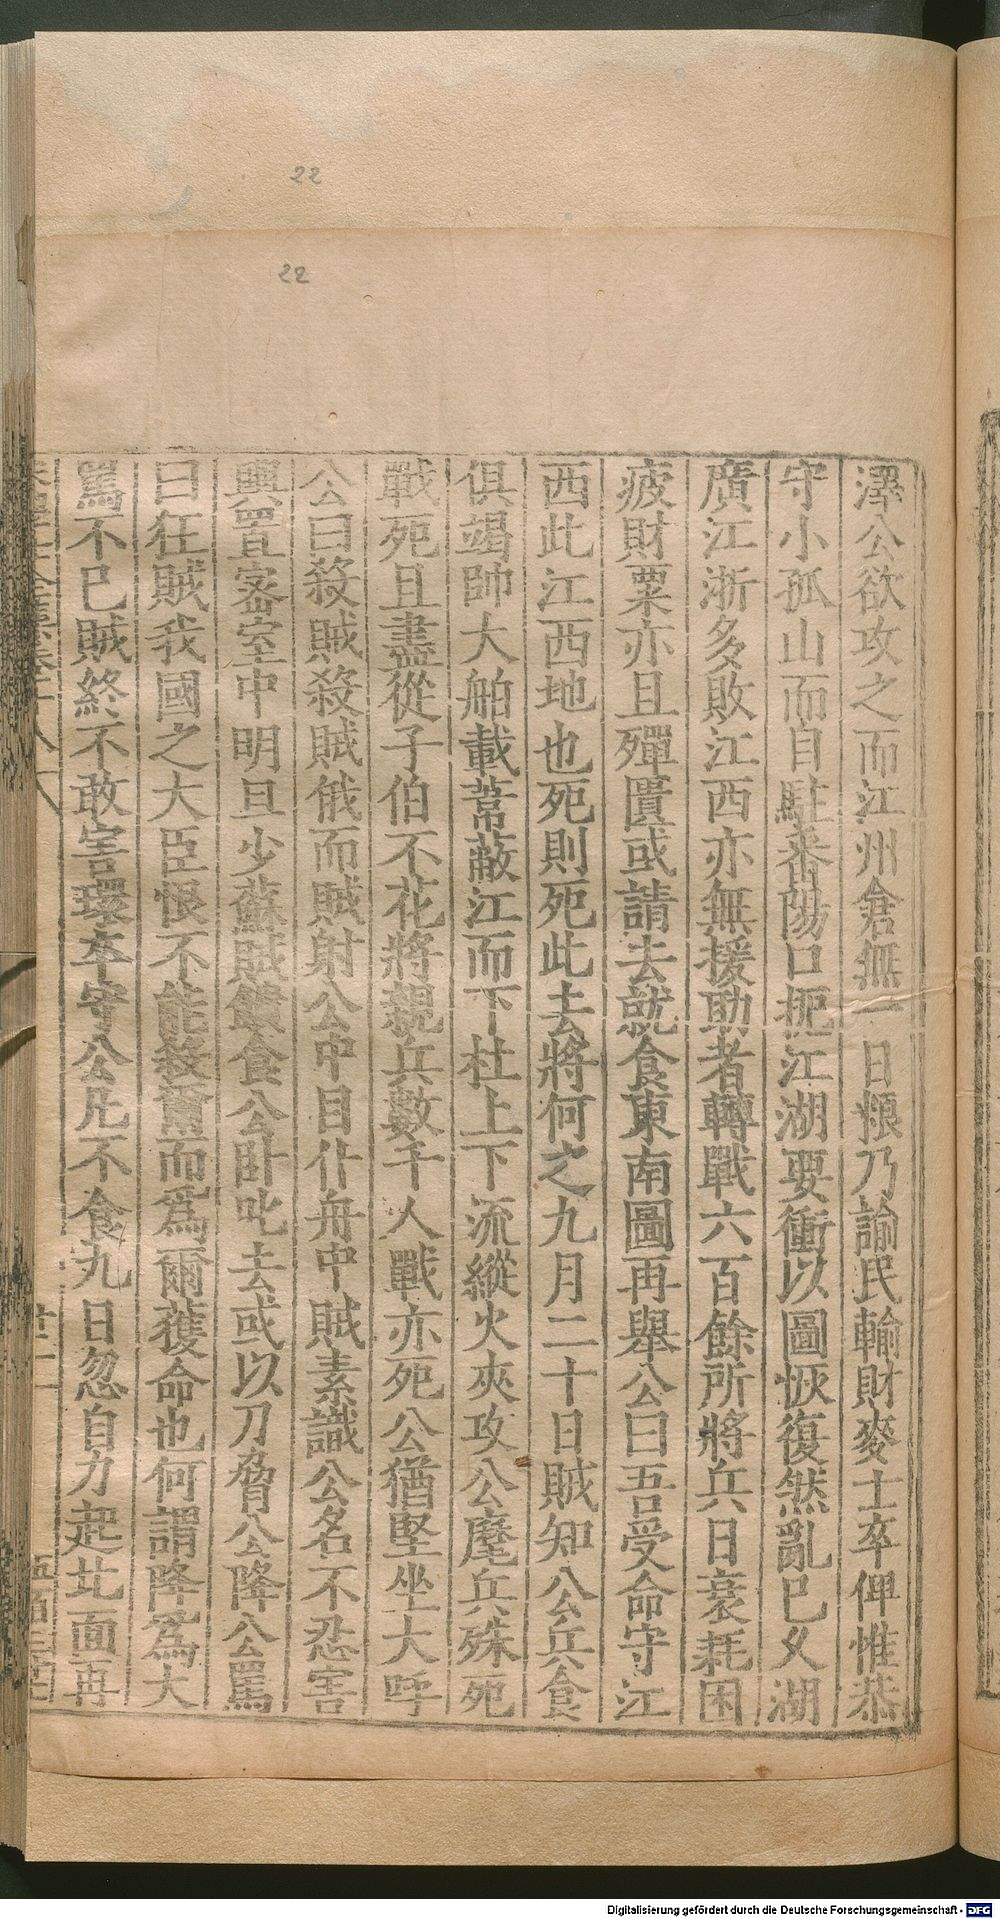 22
22
澤公欲攻之而江州倉無一日粮乃諭民輸財麥士卒俾惟恭
守小孤山而自駐番陽口扼江湖要衝以圖恢復然亂已乂湖
廣江浙多敗江西亦無援助者轉戰六百餘所將兵日衰耗困
疲財粟亦且殫匱或請去就食東南圖再舉公曰吾受命守江
西此江西地也死則死此去將何之九月二十日賊知公兵食
俱竭帥大舶載葦蔽江而下杜上下流縱火夾攻公麾兵殊死
戰死且盡從子伯不花將親兵數千人戰亦死公猶堅坐大呼
公曰殺賊殺賊俄而賊射公中目仆舟中賊素識公名不忍害
輿置密室中明旦少蘇賊饋食公卧叱去或以刀脅公降公罵
曰狂賊我國之大臣恨不能殺爾而為爾獲命也何謂降為大
罵不已賊終不敢害環卒守公凡不食九日忽自力起北面再
Digitalisierung gefördert durch die Deutsche Forschungsgemeinschaft - DFG